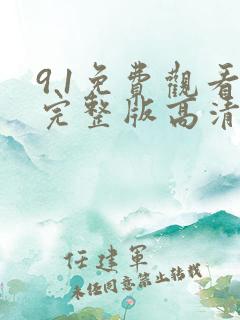 9.1免費觀看
完整版高清
任建軍
未经同意禁止转载